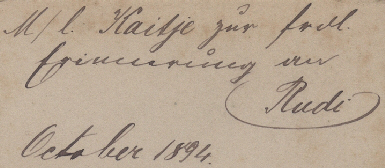 M/ l. Kaitje zur frdl.
Erinnerung an
Rudi
October 1894.